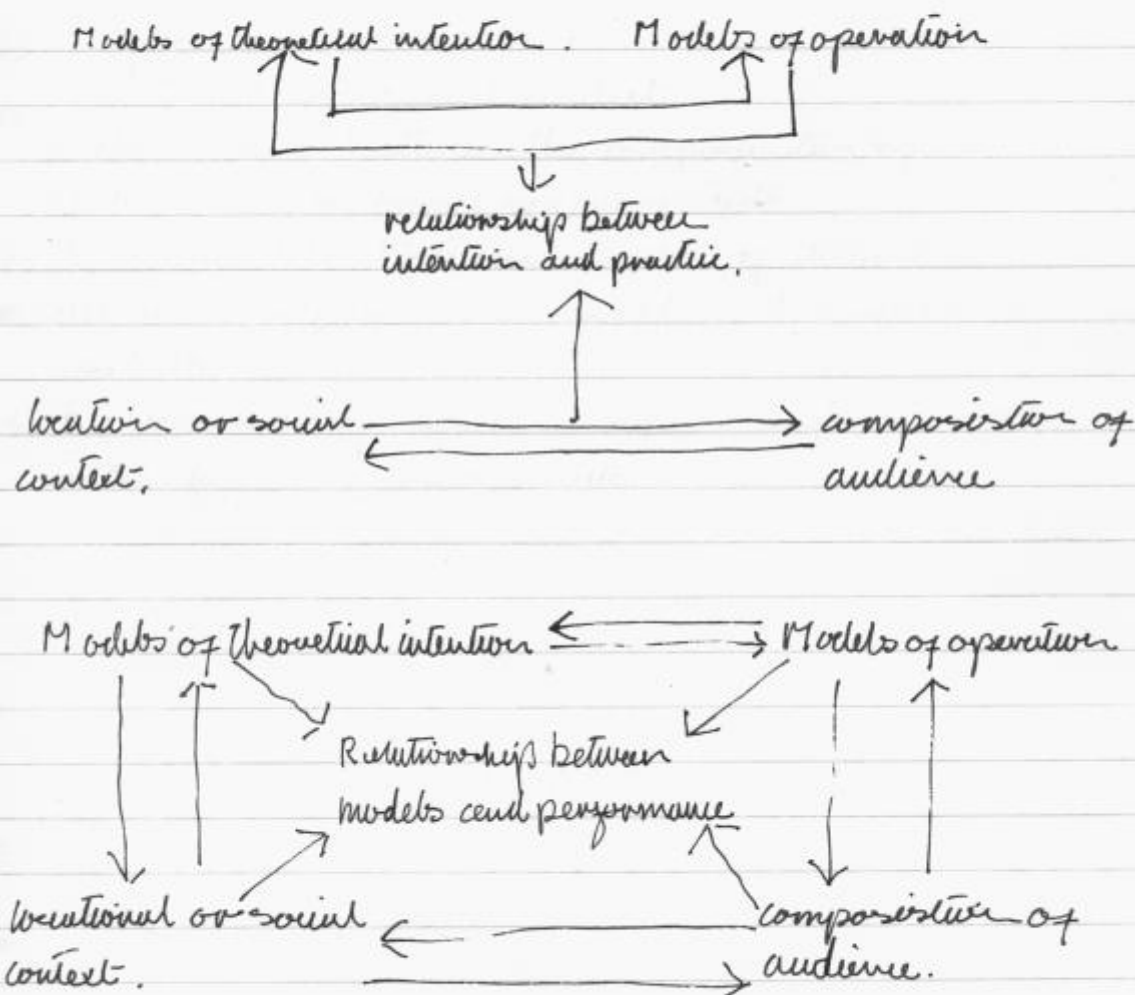 Models of theoretical intention. Models of operation
relationship between
intention and practice.
location or social composistion of
context. audience
Models of theoretical intention Models of operation
Relationship between
models and performance
locational or social composistion of
context. audience.